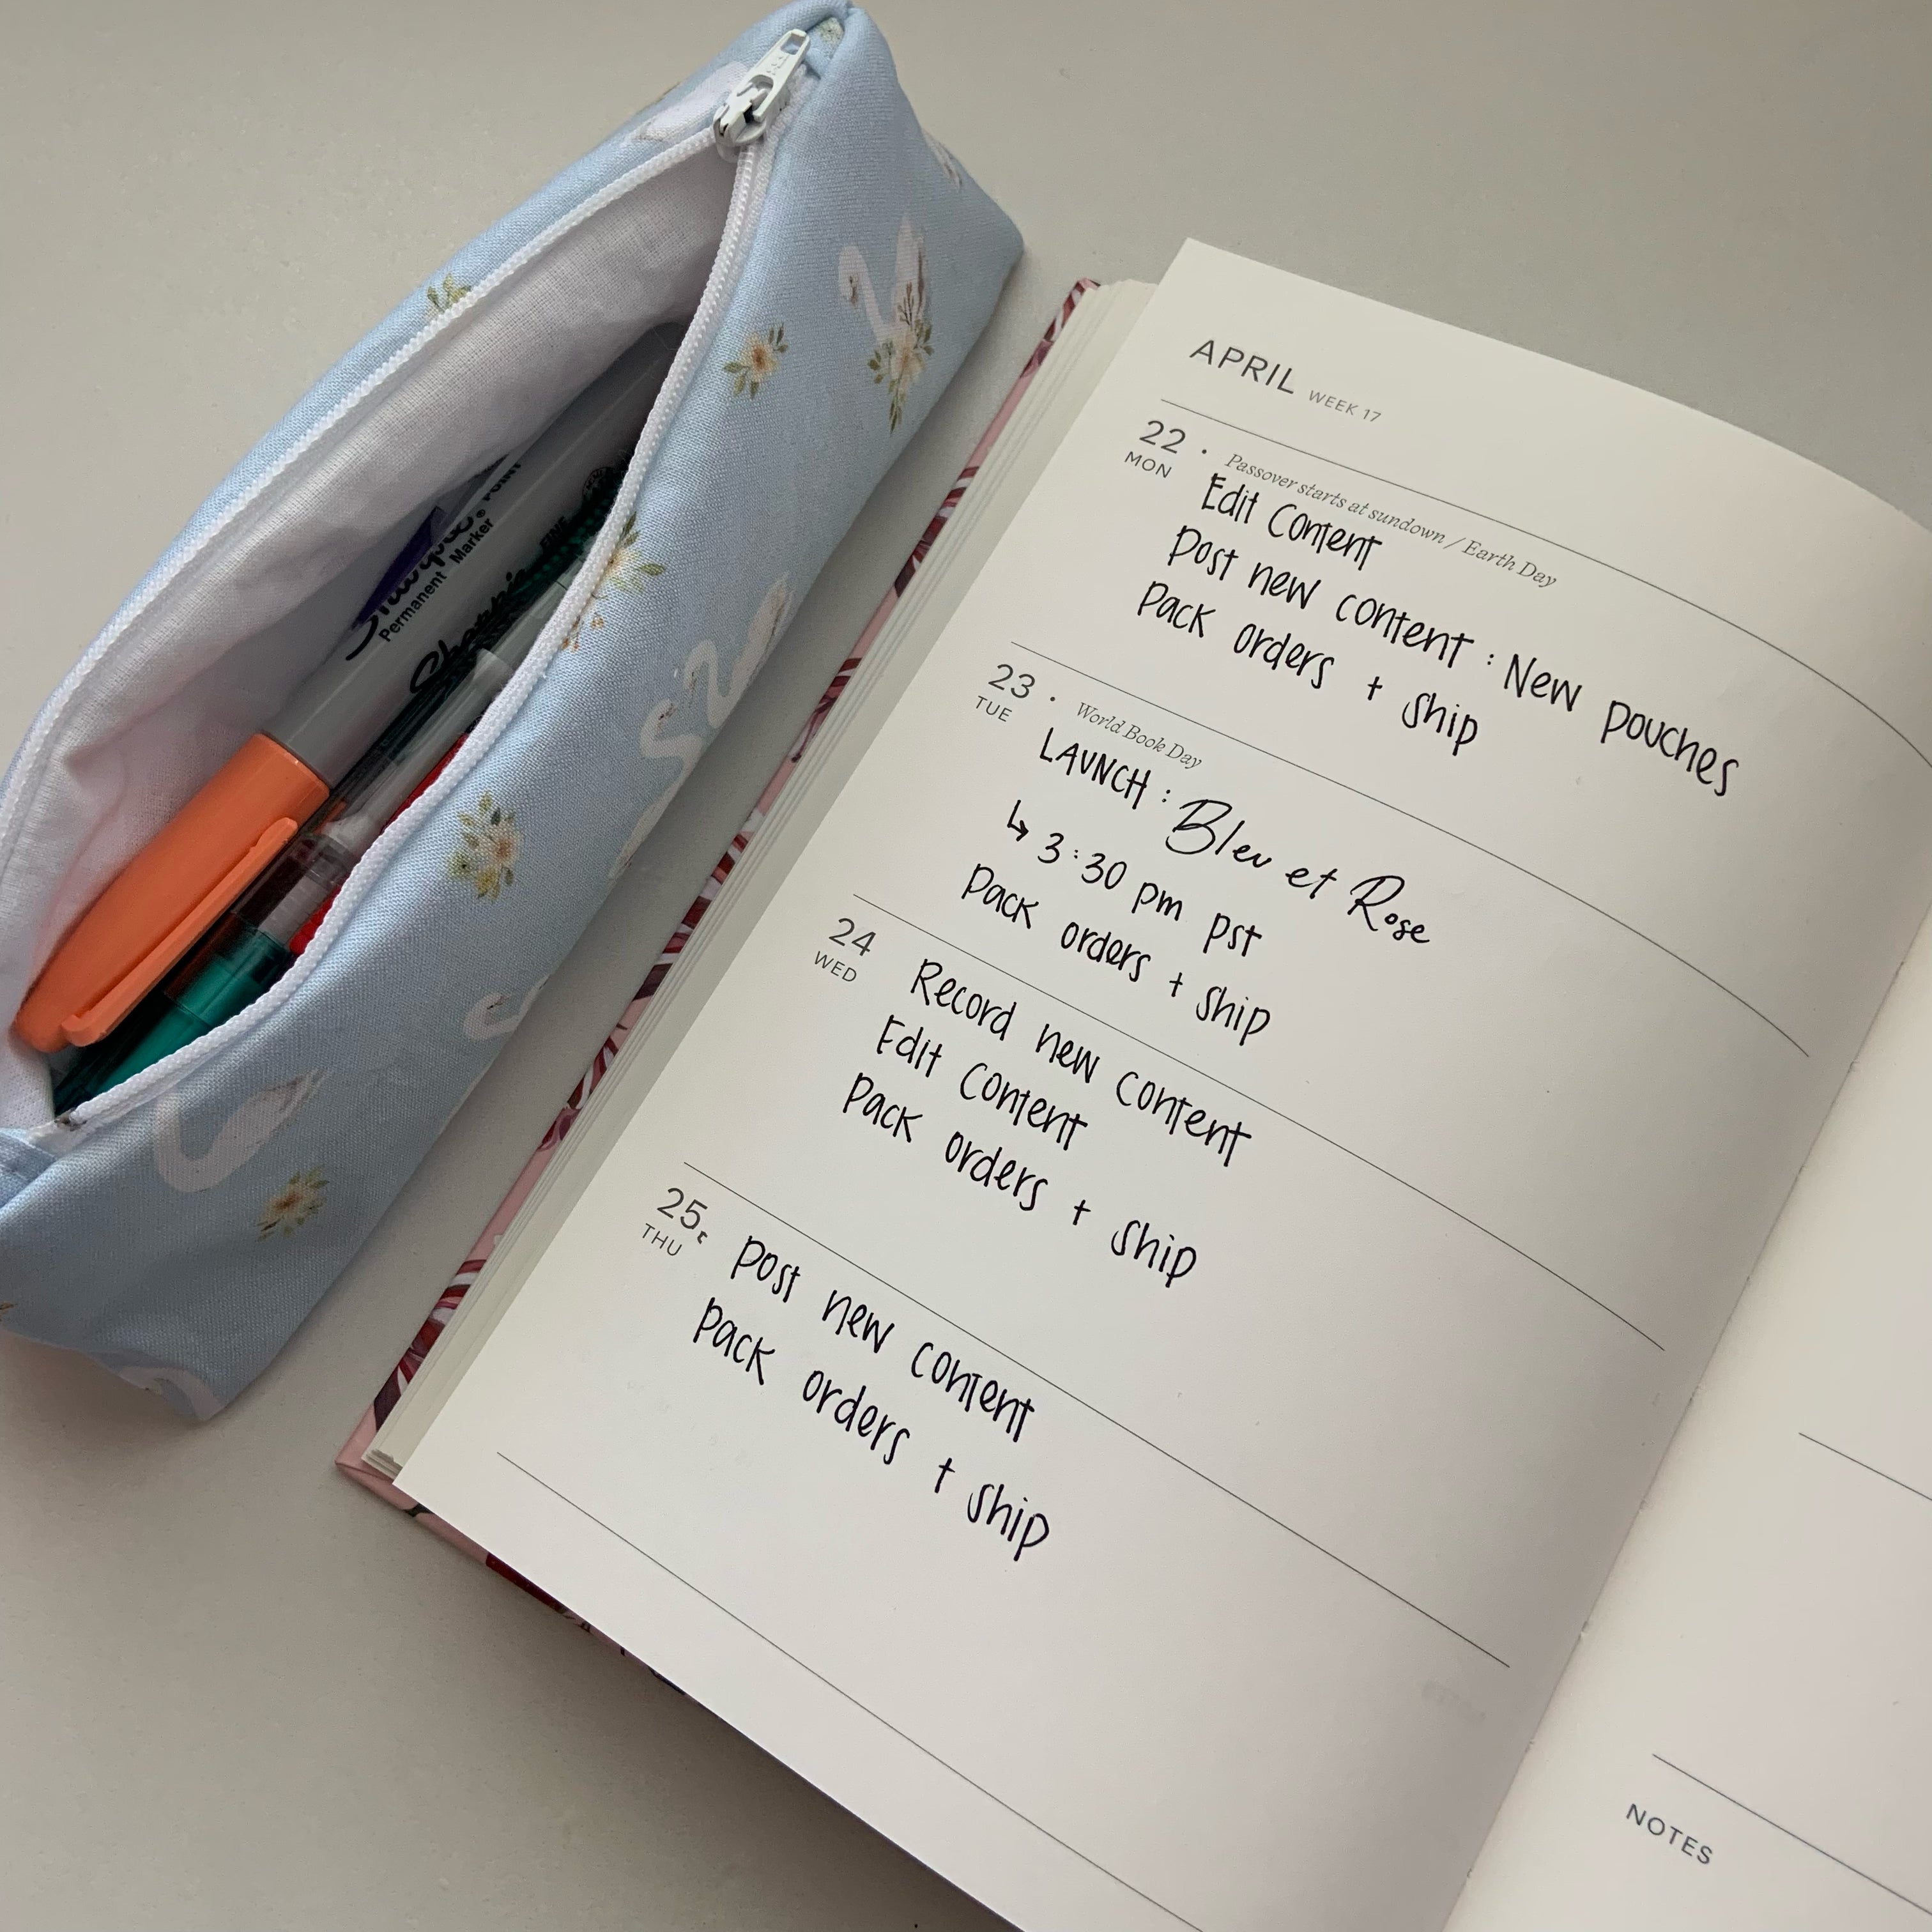 APRIL WEEK 17
22 MON
Passover starts at sundown / Earth Day
Edit Content
Post new content : New pouches
Pack orders + ship
23 TUE
World Book Day
LAUNCH : Bleu et Rose
↳ 3:30 pm pst
Pack orders + ship
24 WED
Record new content
Edit Content
Pack orders + ship
25 THU
Post new content
Pack orders + ship
NOTES
Sharpie® POINT
Permanent Marker
Sharpie FINE